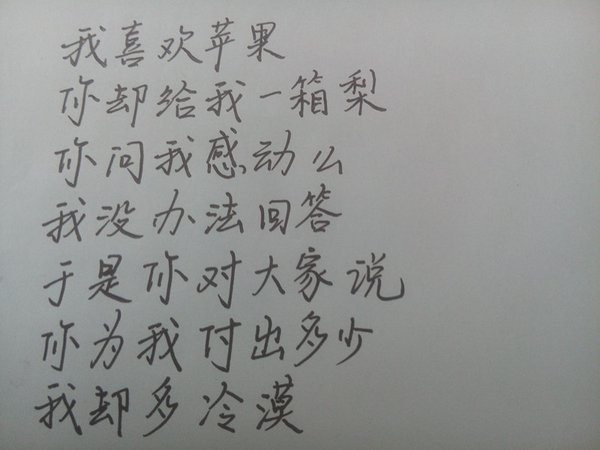 我喜欢苹果
你却给我一箱梨
你问我感动么
我没办法回答
于是你对大家说
你为我付出多少
我却多冷漠